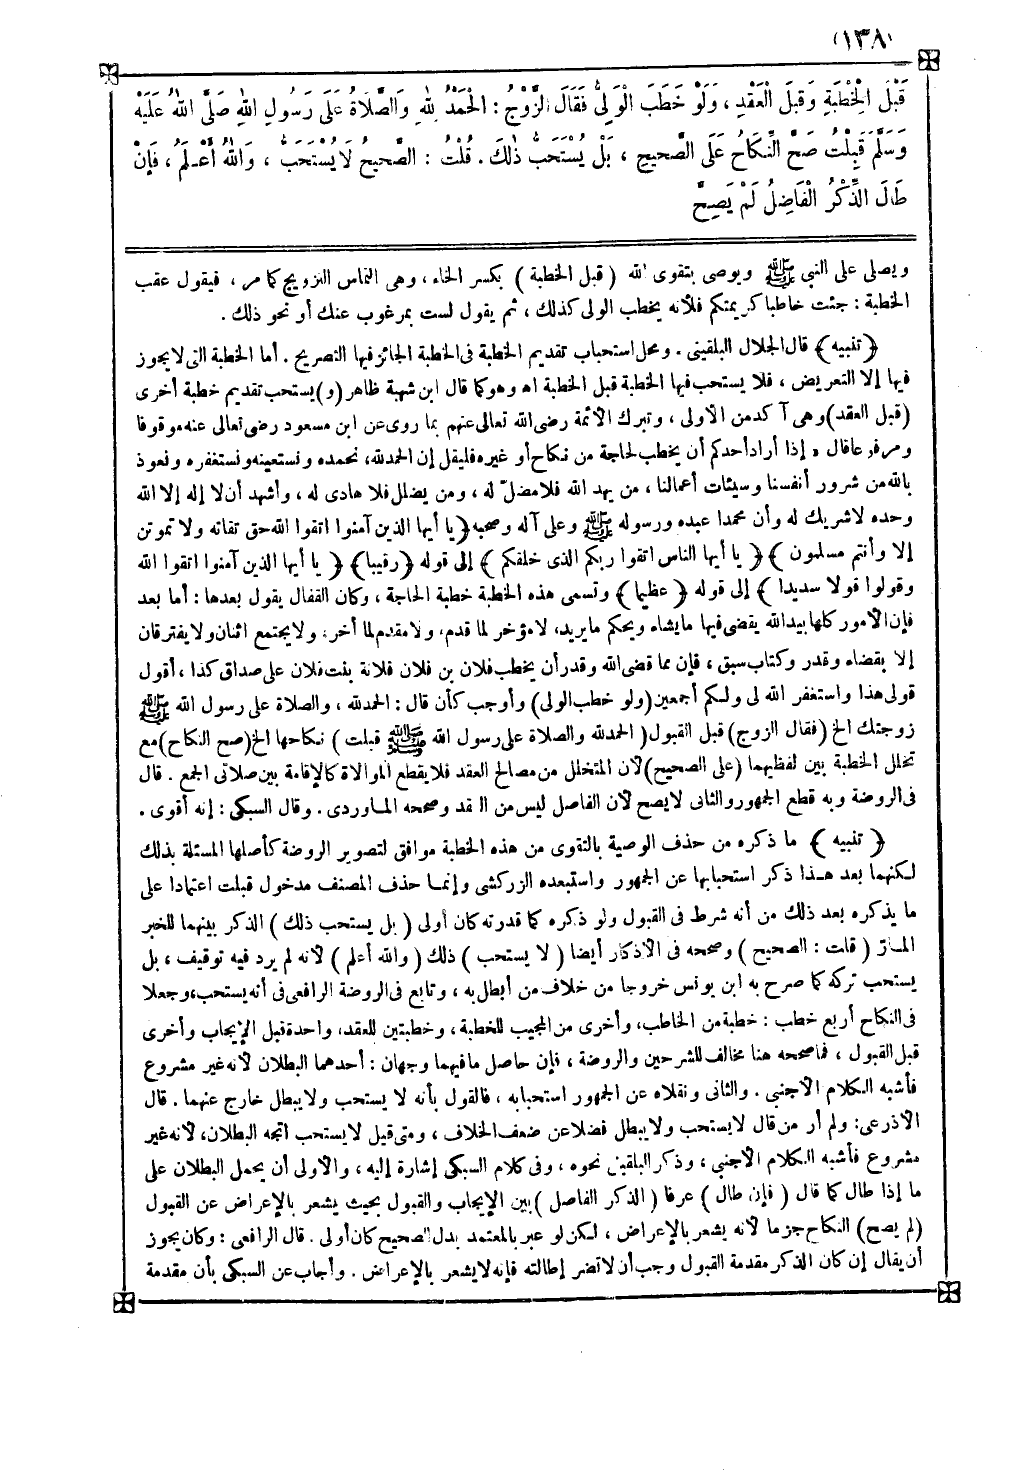 (١٣٨)
قَبْلَ الْخِطْبَةِ وَقَبْلَ الْعَقْدِ ، وَلَوْ خَطَبَ الْوَلِيُّ فَقَالَ الزَّوْجُ : الْحَمْدُ لِلهِ وَالصَّلَاةُ عَلَى رَسُولِ اللهِ صَلَّى اللهُ عَلَيْهِ
وَسَلَّمَ قَبِلْتُ صَحَّ النِّكَاحُ عَلَى الصَّحِيحِ ، بَلْ يُسْتَحَبُّ ذٰلِكَ . قُلْتُ : الصَّحِيحُ لَا يُسْتَحَبُّ ، وَاللهُ أَعْلَمُ ، فَإِنْ
طَالَ الذِّكْرُ الْفَاصِلُ لَمْ يَصِحَّ
ويصلى على النبي ﷺ ويوصى بتقوى الله ( قبل الخطبة ) بكسر الخاء ، وهى التماس التزويج كما مر ، فيقول عقب
الخطبة : جئت خاطبا كريمتكم فلانه يخطب الولى كذلك ، ثم يقول لست بمرغوب عنك أو نحو ذلك .
﴿ تنبيه ﴾ قال الجلال البلقينى . ومحل استحباب تقديم الخطبة فى الخطبة الجائز فيها التصريح . أما الخطبة التى لا يجوز
فيها إلا التعريض ، فلا يستحب فيها الخطبة قبل الخطبة اه وهو كما قال ابن شهبة ظاهر (و) يستحب تقديم خطبة أخرى
(قبل العقد) وهى آكد من الأولى ، وتبرك الأئمة رضى الله تعالى عنهم بما روى عن ابن مسعود رضى تعالى عنه موقوفا
ومرفوعا قال « إذا أراد أحدكم أن يخطب لحاجة من نكاح أو غيره فليقل إن الحمد لله، نحمده ونستعينه ونستغفره ونعوذ
بالله من شرور أنفسنا وسيئات أعمالنا ، من يهد الله فلا مضل له ، ومن يضلل فلا هادى له ، وأشهد أن لا إله إلا الله
وحده لا شريك له وأن محمدا عبده ورسوله ﷺ وعلى آله وصحبه ﴿ يا أيها الذين آمنوا اتقوا الله حق تقاته ولا تموتن
إلا وأنتم مسلمون ﴾ ﴿ يا أيها الناس اتقوا ربكم الذى خلقكم ﴾ إلى قوله ﴿ رقيبا ﴾ ﴿ يا أيها الذين آمنوا اتقوا الله
وقولوا قولا سديدا ﴾ إلى قوله ﴿ عظيما ﴾ وتسمى هذه الخطبة خطبة الحاجة ، وكان القفال يقول بعدها : أما بعد
فإن الأمور كلها بيد الله يقضى فيها ما يشاء ويحكم ما يريد، لا مؤخر لما قدم، ولا مقدم لما أخر، ولا يجتمع اثنان ولا يفترقان
إلا بقضاء وقدر وكتاب سبق ، فإن مما قضى الله وقدر أن يخطب فلان بن فلان فلانة بنت فلان على صداق كذا ، أقول
قولى هذا واستغفر الله لى ولكم أجمعين (ولو خطب الولى) وأوجب كأن قال : الحمد لله ، والصلاة على رسول الله ﷺ
زوجتك الخ (فقال الزوج) قبل القبول ( الحمد لله والصلاة على رسول الله ﷺ قبلت ) نكاحها الخ (صح النكاح) مع
تخلل الخطبة بين لفظيهما (على الصحيح) لأن المتخلل من مصالح العقد فلا يقطع الموالاة كالإقامة بين صلاتى الجمع . قال
فى الروضة وبه قطع الجمهور والثانى لا يصح لأن الفاصل ليس من العقد وصححه الماوردى . وقال السبكى : إنه أقوى .
﴿ تنبيه ﴾ ما ذكره من حذف الوصية بالتقوى من هذه الخطبة موافق لتصوير الروضة كأصلها المسئلة بذلك
لكنهما بعد هذا ذكر استحبابها عن الجمهور واستبعده الزركشى وإنما حذف المصنف مدخول قبلت اعتمادا على
ما يذكره بعد ذلك من أنه شرط فى القبول ولو ذكره كما قدرته كان أولى ( بل يستحب ذلك ) الذكر بينهما للخبر
المار ( قلت : الصحيح ) وصححه فى الأذكار أيضا ( لا يستحب ) ذلك ( والله أعلم ) لأنه لم يرد فيه توقيف ، بل
يستحب تركه كما صرح به ابن يونس خروجا من خلاف من أبطل به ، وتابع فى الروضة الرافعى فى أنه يستحب، وجعلا
فى النكاح أربع خطب : خطبة من الخاطب، وأخرى من المجيب للخطبة ، وخطبتين للعقد، واحدة قبل الإيجاب وأخرى
قبل القبول ، فما صححه هنا مخالف للشرحين والروضة ، فإن حاصل ما فيهما وجهان : أحدهما البطلان لأنه غير مشروع
فأشبه الكلام الأجنبى . والثانى ونقلاه عن الجمهور استحبابه ، فالقول بأنه لا يستحب ولا يبطل خارج عنهما . قال
الأذرعى: ولم أر من قال لا يستحب ولا يبطل فضلا عن ضعف الخلاف ، ومتى قيل لا يستحب اتجه البطلان، لأنه غير
مشروع فأشبه الكلام الأجنبى ، وذكر البلقينى نحوه ، وفى كلام السبكى إشارة إليه ، والأولى أن يحمل البطلان على
ما إذا طال كما قال ( فإن طال ) عرفا ( الذكر الفاصل ) بين الإيجاب والقبول بحيث يشعر بالإعراض عن القبول
(لم يصح) النكاح جزما لأنه يشعر بالإعراض ، لكن لو عبر بالمعتمد بدل الصحيح كان أولى . قال الرافعى : وكان يجوز
أن يقال إن كان الذكر مقدمة القبول وجب أن لا تضر إطالته فإنه لا يشعر بالإعراض . وأجاب عن السبكى بأن مقدمة